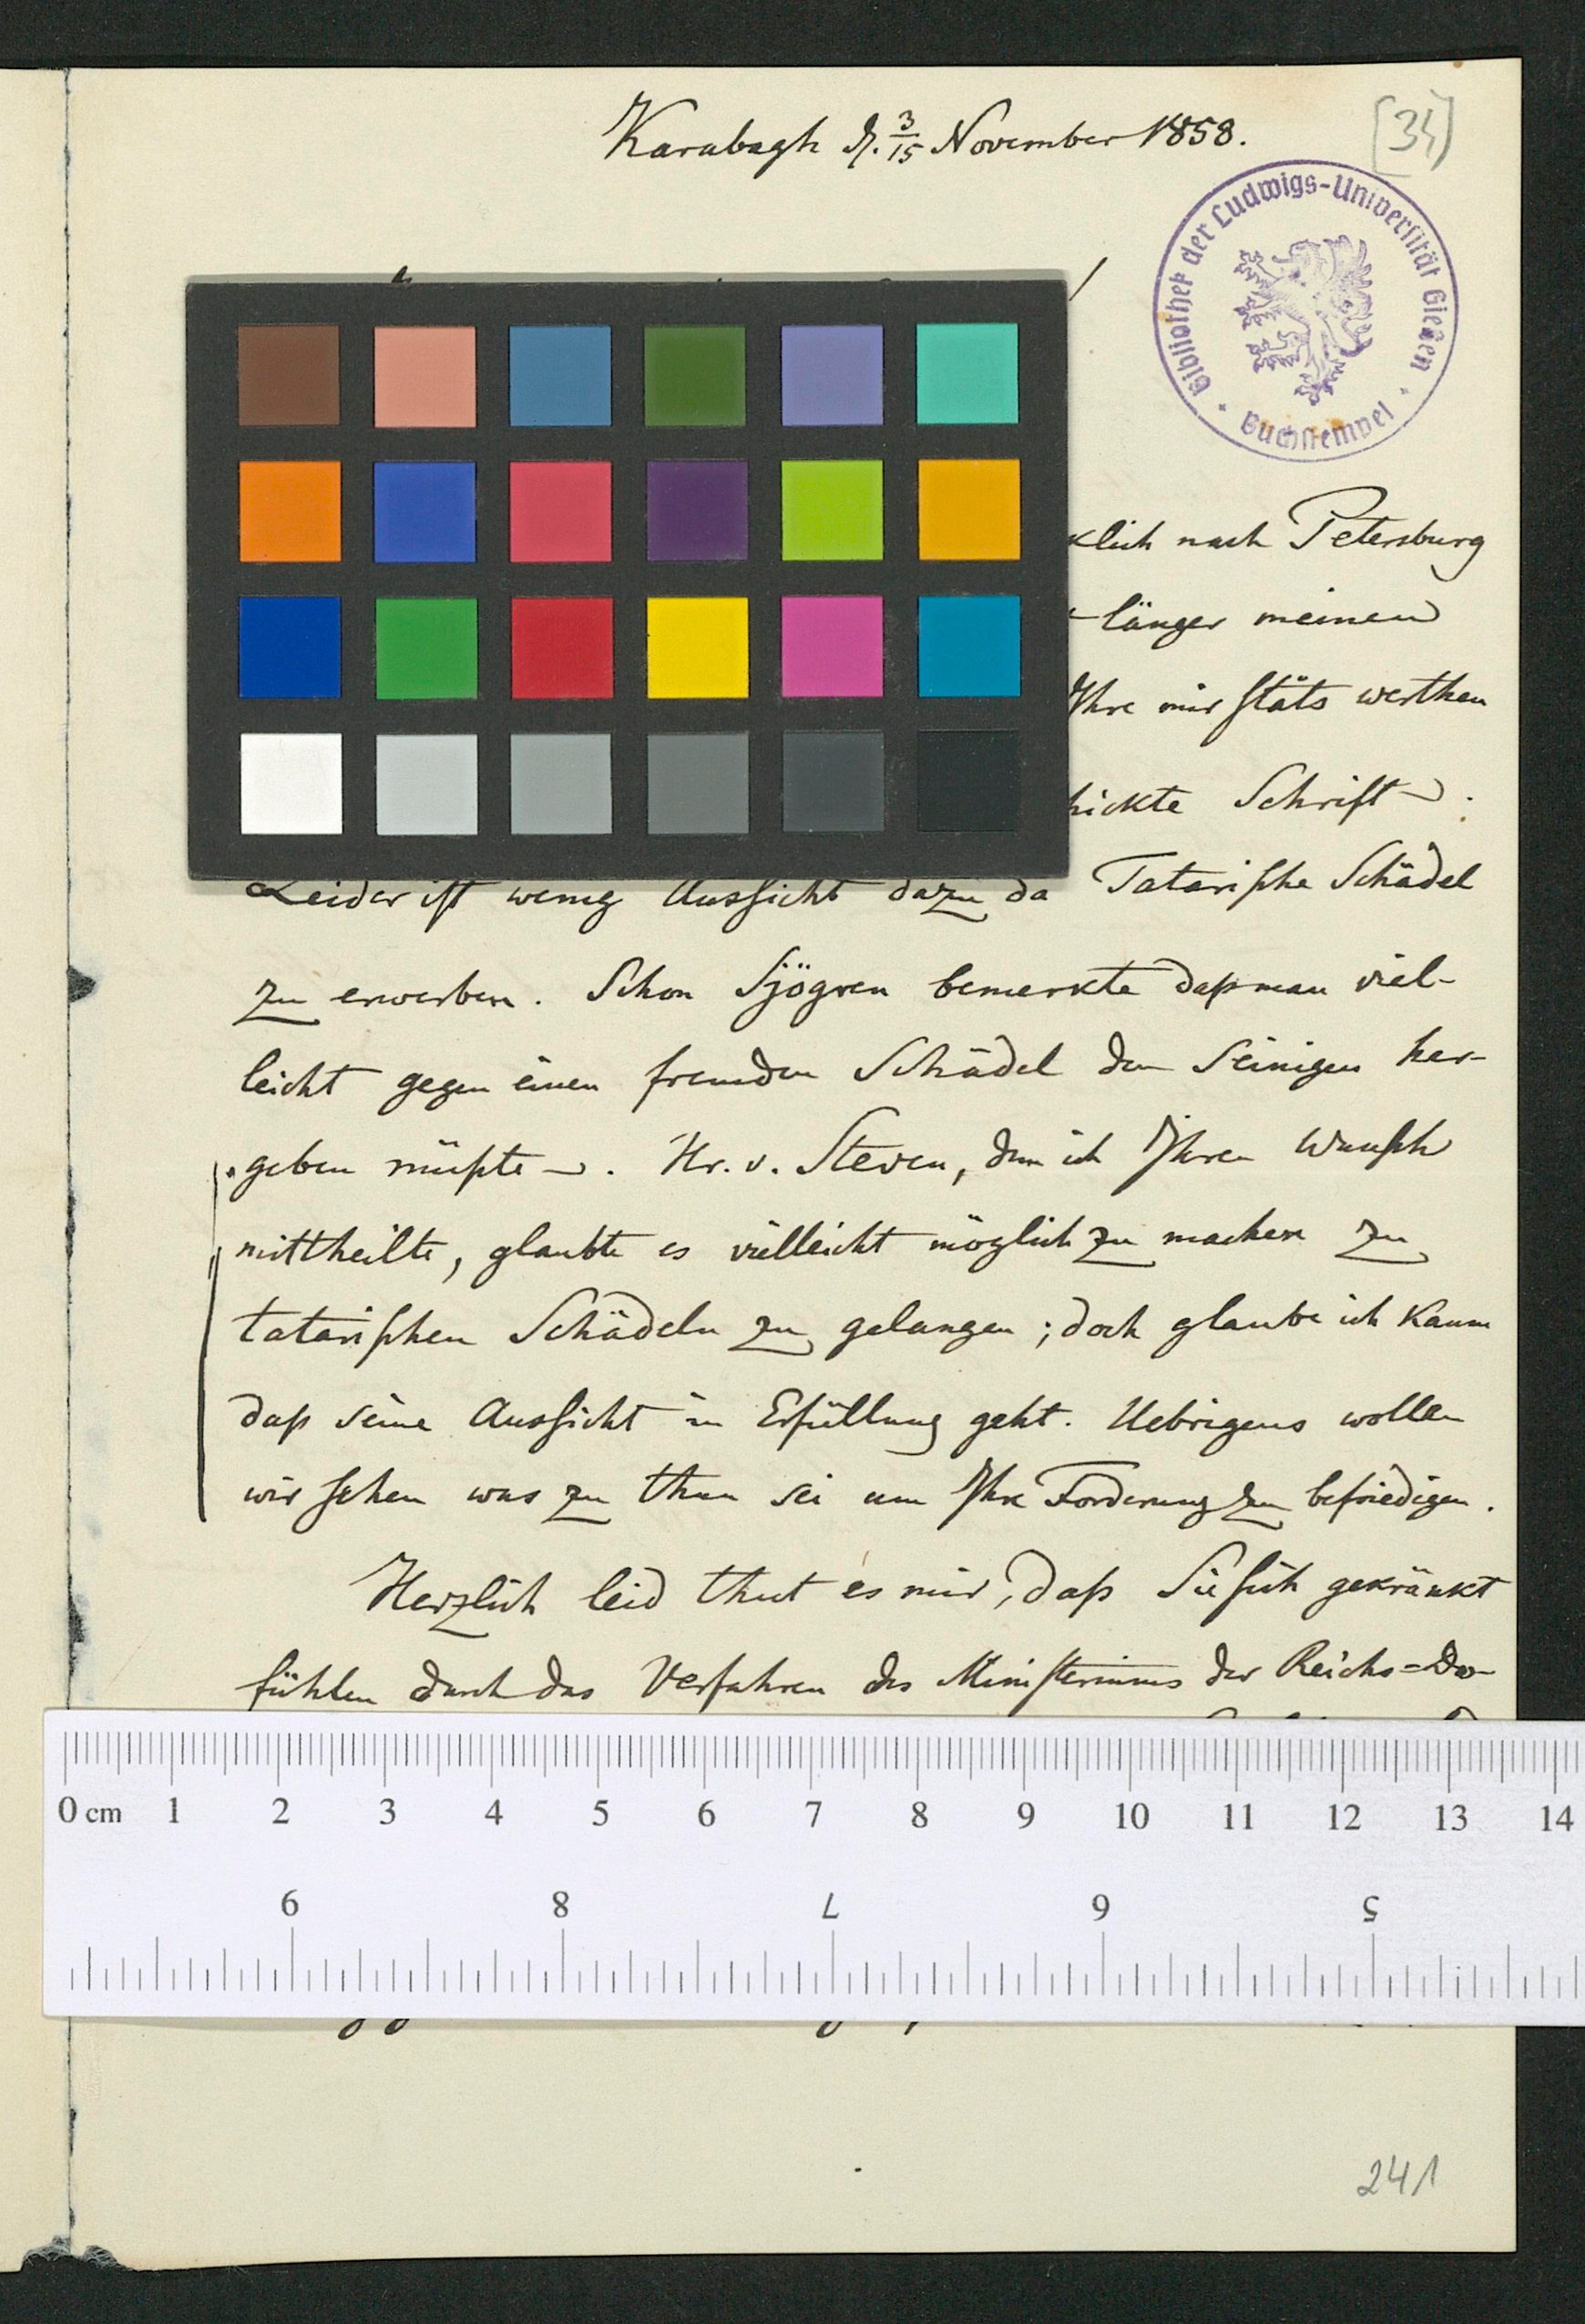 Karabagh d. 3/15 November 1858.
[34]
Bibliothek der Ludwigs-Universität Gießen
Buchstempel
klich nach Petersburg
länger meinen
Ihre mir stäts werthen
hickte Schrift.
Leider ist wenig Aussicht dazu da Tatarische Schädel
zu erwerben. Schon Sjögren bemerkte daß man viel-
leicht gegen einen fremden Schädel den Seinigen her-
geben müßte. Hr. v. Steven, dem ich Ihren Wunsch
mittheilte, glaubte es vielleicht möglich zu machen zu
tatarischen Schädeln zu gelangen; doch glaube ich kaum
daß seine Aussicht in Erfüllung geht. Uebrigens wollen
wir sehen was zu thun sei um Ihre Forderung zu befriedigen.
Herzlich leid thut es mir, daß Sie sich gekränkt
fühlen durch das Verfahren des Ministeriums der Reichs=Do-
0 cm 1 2 3 4 5 6 7 8 9 10 11 12 13 14
9 8 7 6 5
241